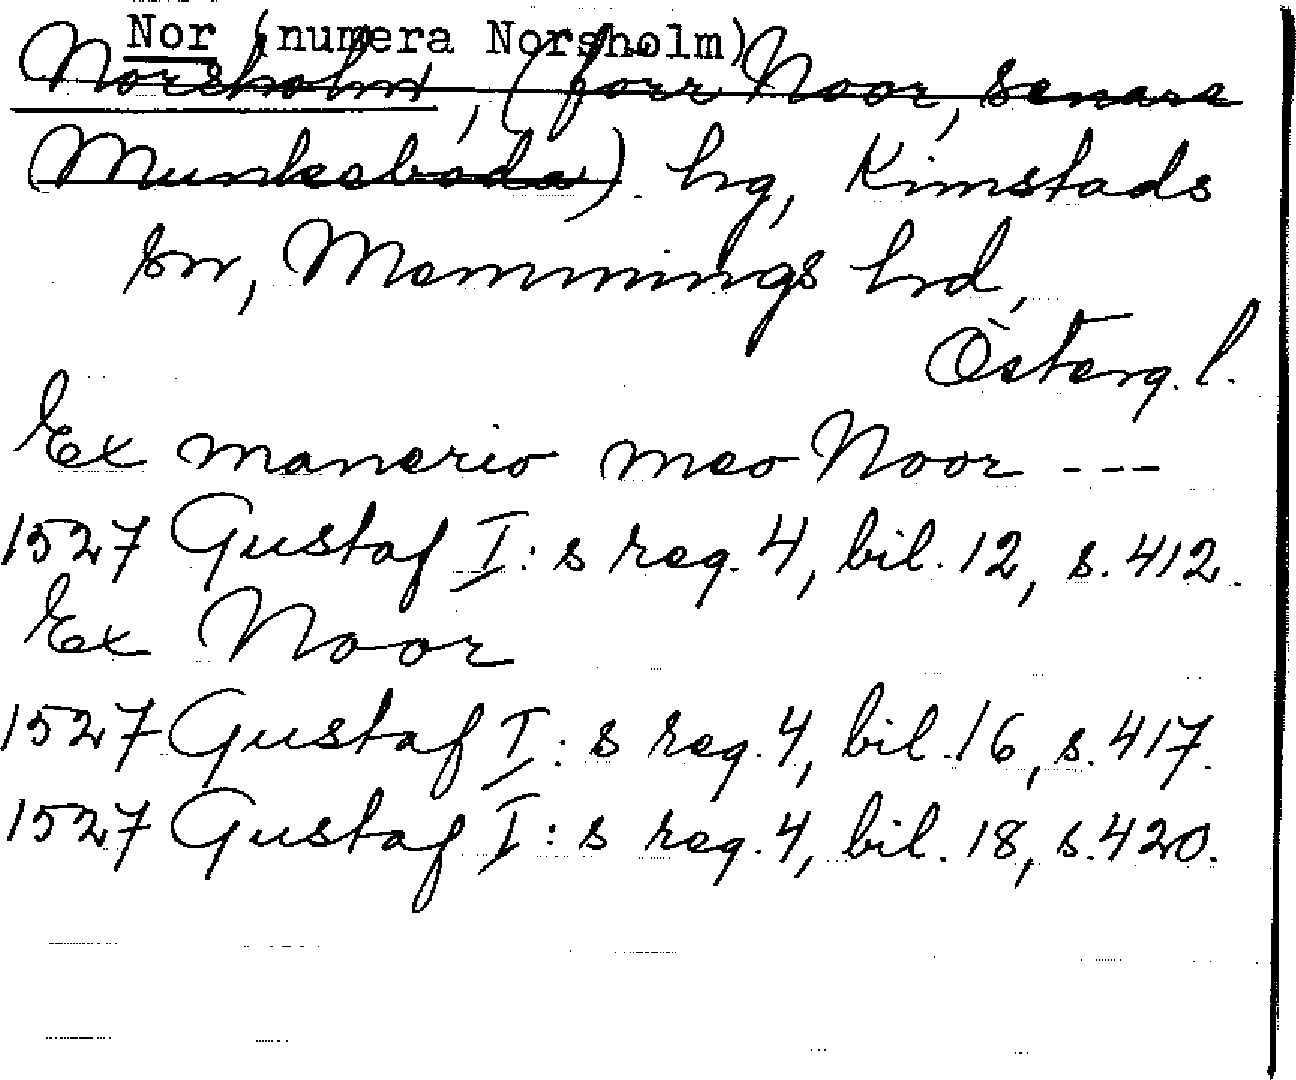 Nor (numera Norsholm)
Norsholm, (förr Noor, senare
Munkeboda). hg, Kimstads
sn, Memmings hrd,
Österg. l.
Ex manerio meo Noor ---
1527 Gustaf I:s reg. 4, bil. 12, s. 412.
Ex Noor
1527 Gustaf I:s reg. 4, bil. 16, s. 417.
1527 Gustaf I:s reg. 4, bil. 18, s. 420.